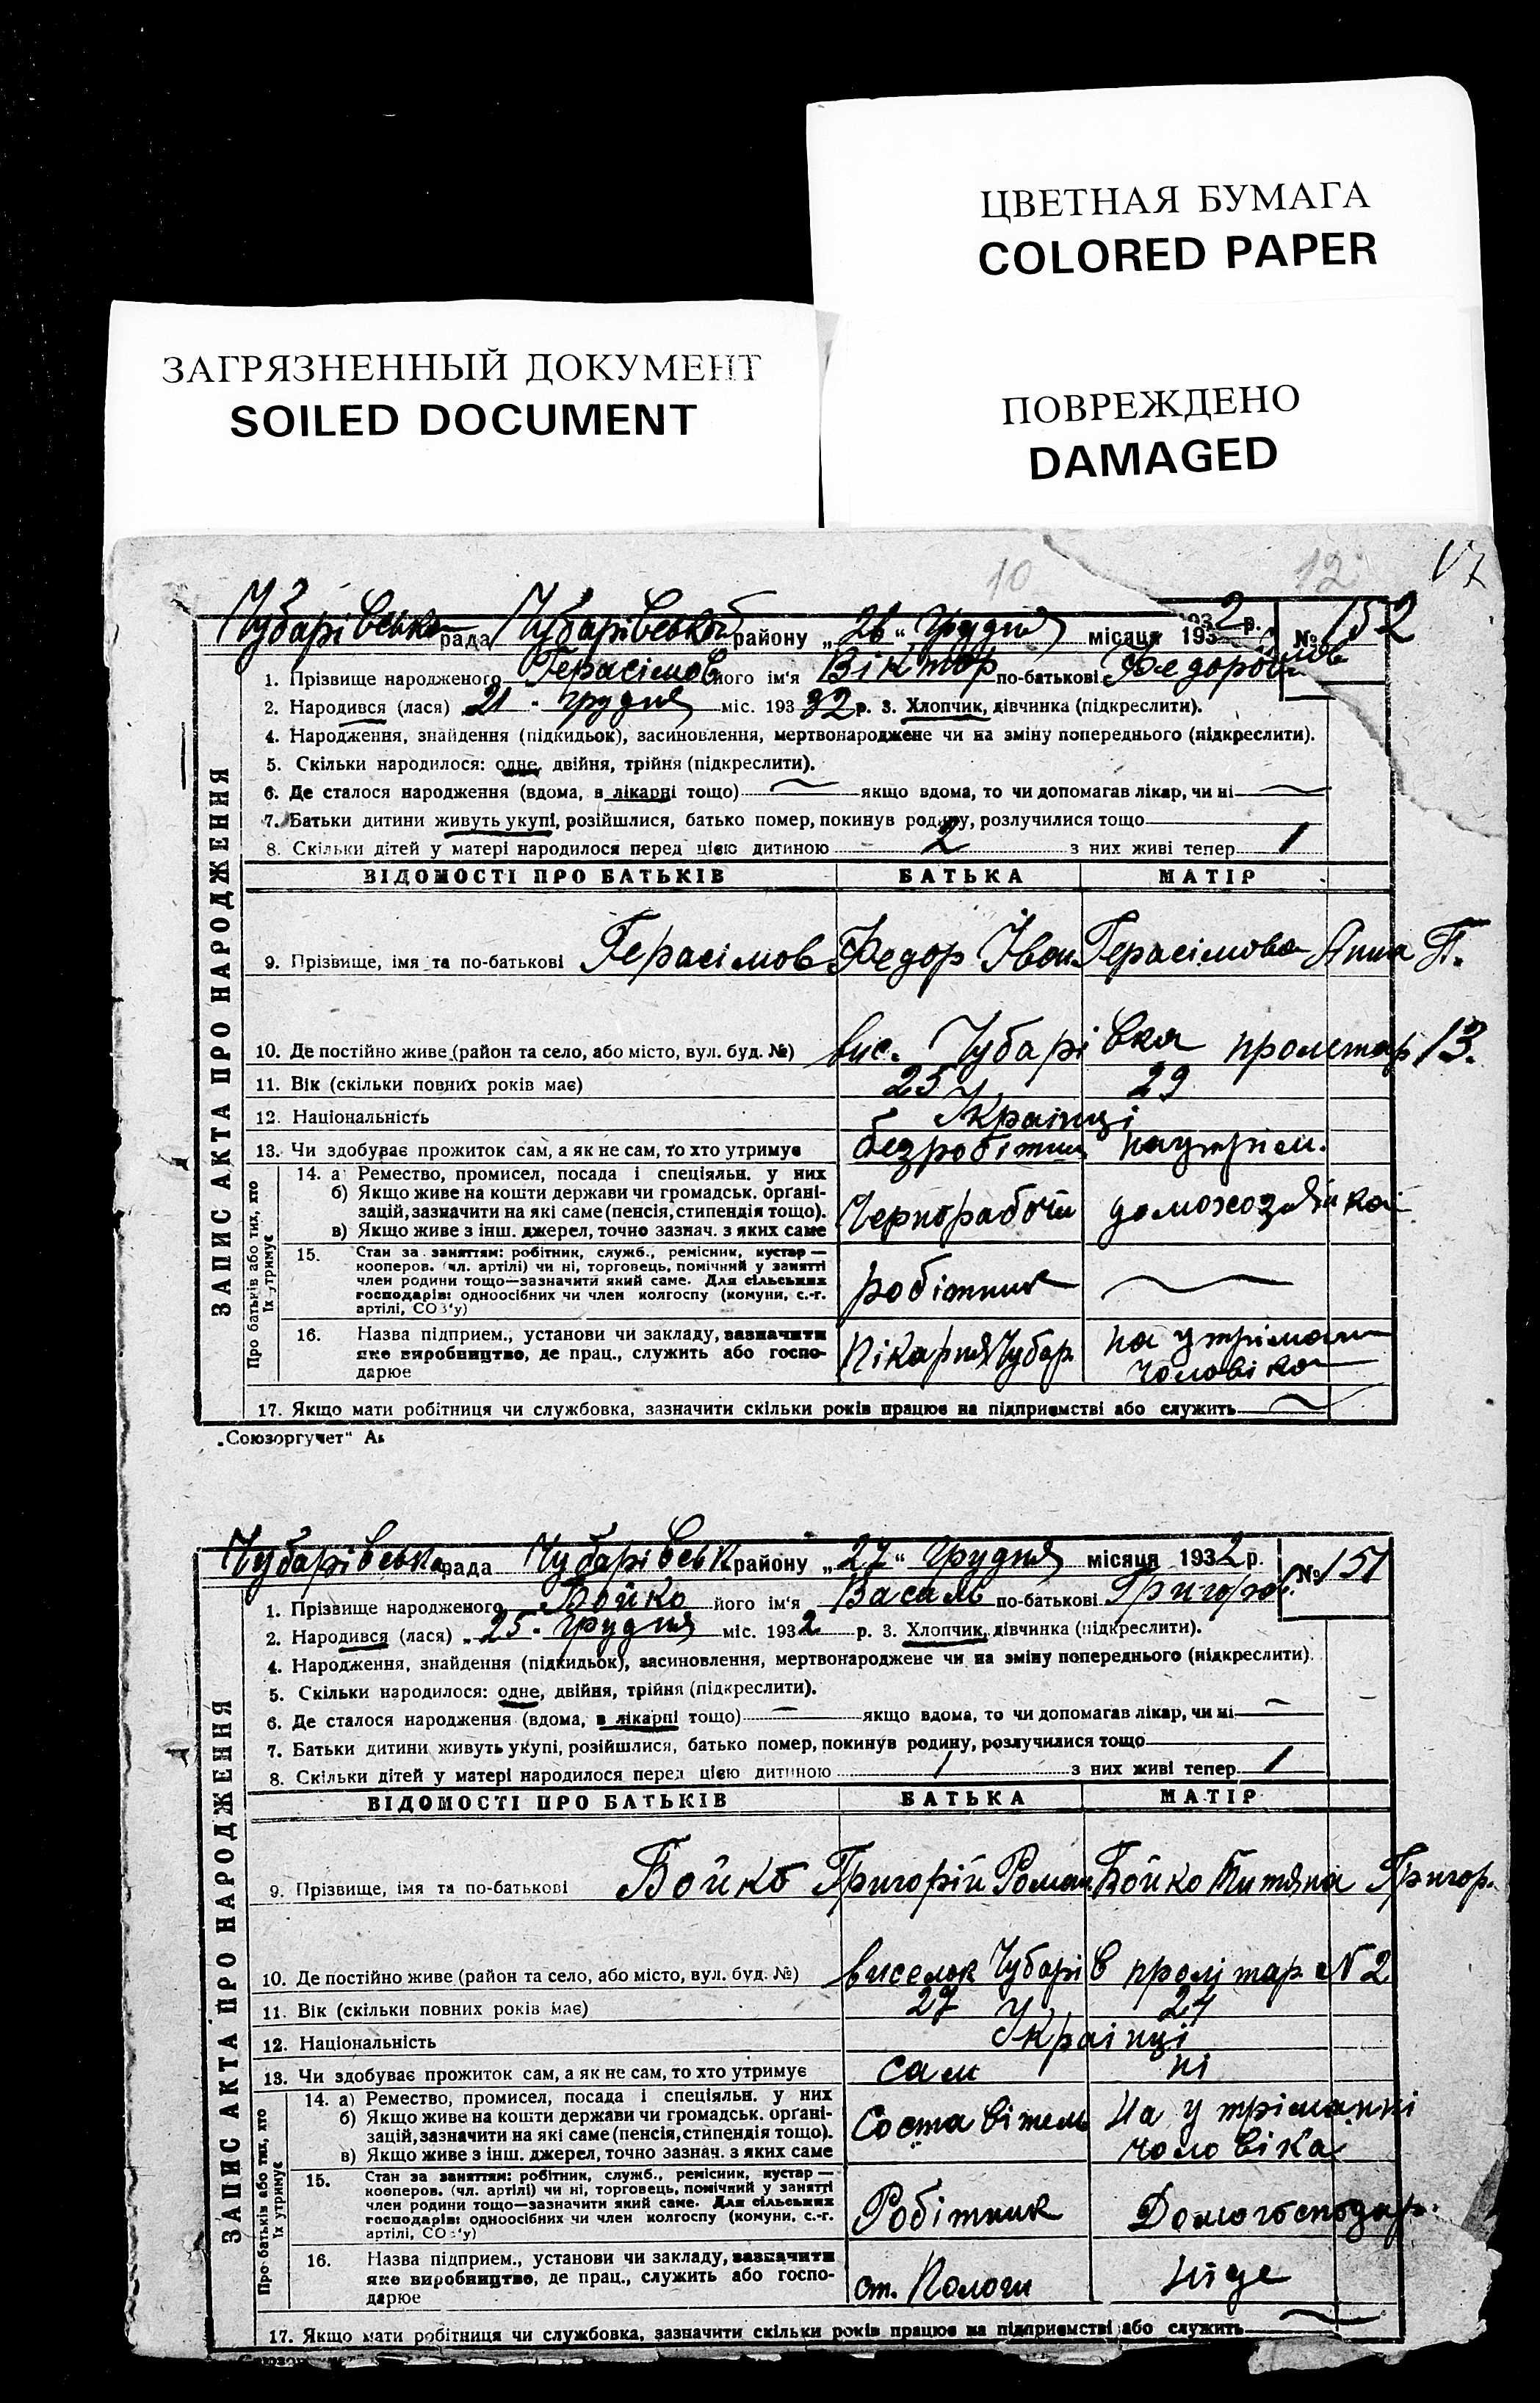 ЦВЕТНАЯ БУМАГА
COLORED PAPER
ЗАГРЯЗНЕННЫЙ ДОКУМЕНТ
SOILED DOCUMENT
ПОВРЕЖДЕНО
DAMAGED
10 12 17
Чубарівська рада Чубарівськой району „26“ Грудня місяця 1932 р. № 152
1. Прізвище народженого Герасімов його ім‘я Віктор по-батькові Федоров
2. Народився (лася) 21 - грудня міс. 193 32 р. 3. Хлопчик, дівчинка (підкреслити).
4. Народження, знайдення (підкидьок), засиновлення, мертвонароджене чи на зміну попереднього (підкреслити).
5. Скільки народилося: одне, двійня, трійня (підкреслити).
6. Де сталося народження (вдома, в лікарні тощо) якщо вдома, то чи допомагав лікар, чи ні
7. Батьки дитини живуть укупі, розійшлися, батько помер, покинув родину, розлучилися тощо
8. Скільки дітей у матері народилося перед цією дитиною 2 з них живі тепер 1
ЗАПИС АКТА ПРО НАРОДЖЕННЯ
ВІДОМОСТІ ПРО БАТЬКІВ БАТЬКА МАТІР
9. Прізвище, імя та по-батькові Герасімов Федор Іван Герасімова Анна П.
10. Де постійно живе (район та село, або місто, вул. буд. №) вис. Чубарівка пролетар 13.
11. Вік (скільки повних років має) 25 29
12. Національність Українці
13. Чи здобуває прожиток сам, а як не сам, то хто утримує безробітній наутрім.
Про батьків або тих, хто їх утримує
14. а) Ремество, промисел, посада і спеціяльн. у них
б) Якщо живе на кошти держави чи громадськ. органі-
зацій, зазначити на які саме (пенсія, стипендія тощо).
в) Якщо живе з інш. джерел, точно зазнач. з яких саме
Чернорабочій домохозяйка
15. Стан за заняттям: робітник, служб., ремісник, кустар —
кооперов. (чл. артілі) чи ні, торговець, помічний у занятті
член родини тощо—зазначити який саме. Для сільських
господарів: одноосібних чи член колгоспу (комуни, с.-г.
артілі, СОЗ‘у)
робітник
16. Назва підприєм., установи чи закладу, зазначити
яке виробництво, де прац., служить або госпо-
дарює
Пікарня Чубар на утріман
чоловіка
17. Якщо мати робітниця чи службовка, зазначити скільки років працює на підприємстві або служить
„Союзоргучет“
Чубарівська рада Чубарівськ району „27“ Грудня місяця 1932 р. № 151
1. Прізвище народженого Бойко його ім‘я Василь по-батькові Григоров.
2. Народився (лася) 25 - грудня міс. 1932 р. 3. Хлопчик, дівчинка (підкреслити).
4. Народження, знайдення (підкидьок), засиновлення, мертвонароджене чи на зміну попереднього (підкреслити).
5. Скільки народилося: одне, двійня, трійня (підкреслити).
6. Де сталося народження (вдома, в лікарні тощо) якщо вдома, то чи допомагав лікар, чи ні
7. Батьки дитини живуть укупі, розійшлися, батько помер, покинув родину, розлучилися тощо
8. Скільки дітей у матері народилося перед цією дитиною 1 з них живі тепер 1
ЗАПИС АКТА ПРО НАРОДЖЕННЯ
ВІДОМОСТІ ПРО БАТЬКІВ БАТЬКА МАТІР
9. Прізвище, імя та по-батькові Бойко Григорій Роман. Бойко Титяна Григор.
10. Де постійно живе (район та село, або місто, вул. буд. №) виселок Чубарів пролітар. № 2
11. Вік (скільки повних років має) 27 24
12. Національність Українці
13. Чи здобуває прожиток сам, а як не сам, то хто утримує сам ні
Про батьків або тих, хто їх утримує
14. а) Ремество, промисел, посада і спеціяльн. у них
б) Якщо живе на кошти держави чи громадськ. органі-
зацій, зазначити на які саме (пенсія, стипендія тощо).
в) Якщо живе з інш. джерел, точно зазнач. з яких саме
Составітель На утріманні
чоловіка
15. Стан за заняттям: робітник, служб., ремісник, кустар —
кооперов. (чл. артілі) чи ні, торговець, помічний у занятті
член родини тощо—зазначити який саме. Для сільських
господарів: одноосібних чи член колгоспу (комуни, с.-г.
артілі, СОЗ‘у)
Робітник Домогосподар.
16. Назва підприєм., установи чи закладу, зазначити
яке виробництво, де прац., служить або госпо-
дарює
ст. Пологи Ніде
17. Якщо мати робітниця чи службовка, зазначити скільки років працює на підприємстві або служить